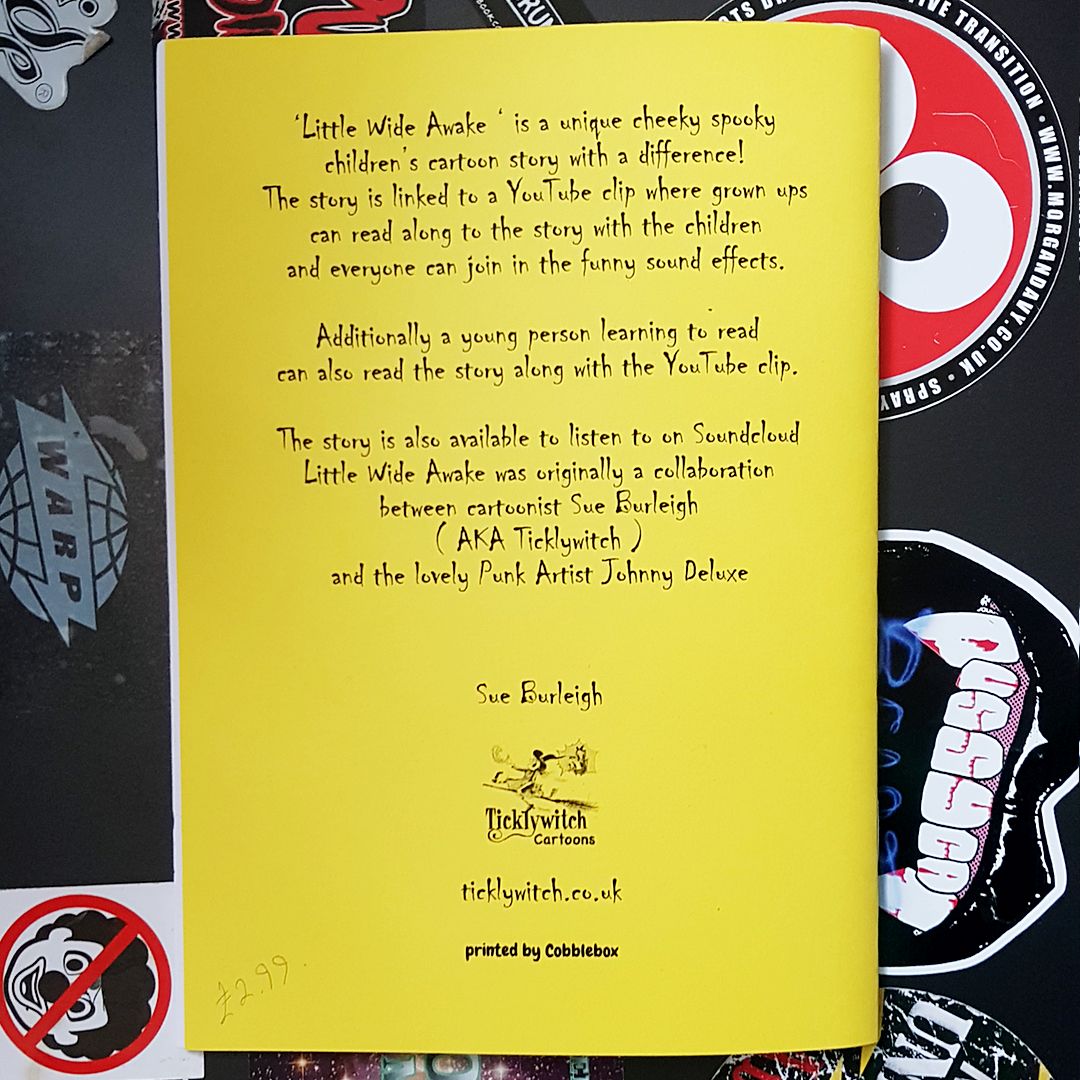 'Little Wide Awake ' is a unique cheeky spooky
children's cartoon story with a difference!
The story is linked to a YouTube clip where grown ups
can read along to the story with the children
and everyone can join in the funny sound effects.
Additionally a young person learning to read
can also read the story along with the YouTube clip.
The story is also available to listen to on Soundcloud
Little Wide Awake was originally a collaboration
between cartoonist Sue Burleigh
( AKA Ticklywitch )
and the lovely Punk Artist Johnny Deluxe
Sue Burleigh
Ticklywitch
Cartoons
ticklywitch.co.uk
printed by Cobblebox
£2.99
WARP
TRANSITION • WWW.MORGANDAVY.CO.UK • SPRAY